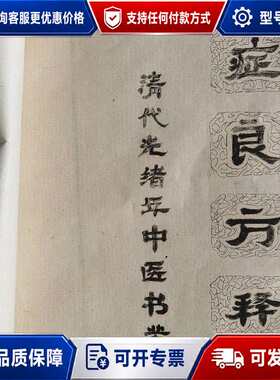 询客服更优惠
支持任何付款方式
型号
症
良
方
释
清代光绪年中医书
品质保障
可开专票